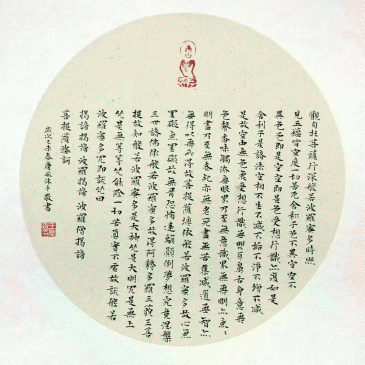 觀自在菩薩行深般若波羅蜜多時照
見五蘊皆空度一切苦厄舍利子色不異空空不
異色色即是空空即是色受想行識亦復如是
舍利子是諸法空相不生不滅不垢不淨不增不減
是故空中無色無受想行識無眼耳鼻舌身意無
色聲香味觸法無眼界乃至無意識界無無明亦無無
明盡乃至無老死亦無老死盡無苦集滅道無智亦
無得以無所得故菩提薩埵依般若波羅蜜多故心無
罣礙無罣礙故無有恐怖遠離顛倒夢想究竟涅槃
三世諸佛依般若波羅蜜多故得阿耨多羅三藐三菩
提故知般若波羅蜜多是大神咒是大明咒是無上
咒是無等等咒能除一切苦真實不虛故說般若
波羅蜜多咒即說咒曰
揭諦揭諦 波羅揭諦 波羅僧揭諦
菩提薩婆訶
歲次乙未春唐敏沐手敬書